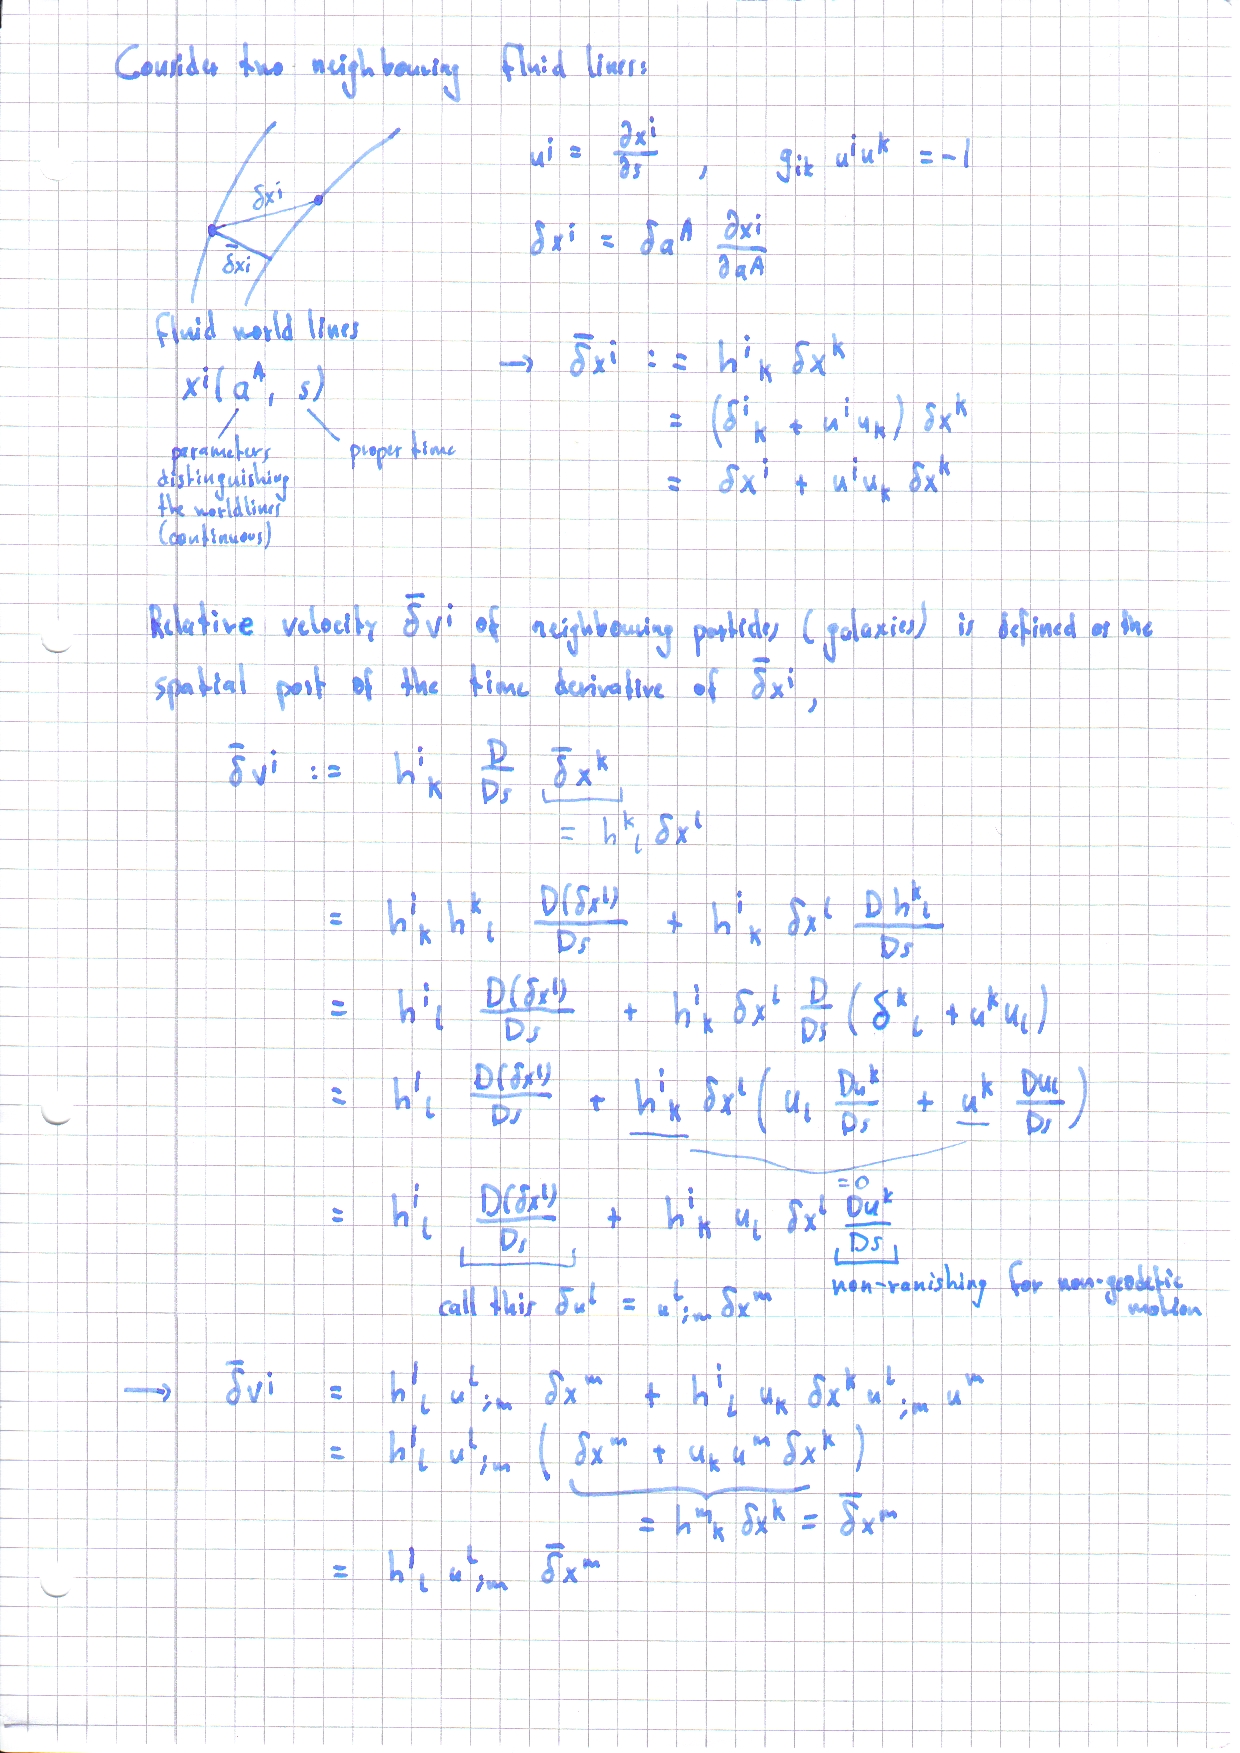 Consider two neighbouring fluid lines:
δxⁱ
δ̄xⁱ
uⁱ = ∂xⁱ/∂s , g_{ik} uⁱ uᵏ = -1
δxⁱ = δa^A ∂xⁱ/∂a^A
fluid world lines
xⁱ(a^A, s)
parameters
distinguishing
the worldlines
(continuous)
proper time
→ δ̄xⁱ := hⁱ_k δxᵏ
= (δⁱ_k + uⁱ u_k) δxᵏ
= δxⁱ + uⁱ u_k δxᵏ
Relative velocity δ̄vⁱ of neighbouring particles (galaxies) is defined as the
spatial part of the time derivative of δ̄xⁱ,
δ̄vⁱ := hⁱ_k D/Ds δ̄xᵏ
= hᵏ_l δxˡ
= hⁱ_k hᵏ_l D(δxˡ)/Ds + hⁱ_k δxˡ D hᵏ_l/Ds
= hⁱ_l D(δxˡ)/Ds + hⁱ_k δxˡ D/Ds (δᵏ_l + uᵏ u_l)
= hⁱ_l D(δxˡ)/Ds + hⁱ_k δxˡ (u_l Duᵏ/Ds + uᵏ Du_l/Ds)
=0
= hⁱ_l D(δxˡ)/Ds + hⁱ_k u_l δxˡ Duᵏ/Ds
call this δuˡ = uˡ_{;m} δxᵐ
non-vanishing for non-geodetic
motion
→ δ̄vⁱ = hⁱ_l uˡ_{;m} δxᵐ + hⁱ_l u_k δxᵏ uˡ_{;m} uᵐ
= hⁱ_l uˡ_{;m} (δxᵐ + u_k uᵐ δxᵏ)
= hᵐ_k δxᵏ = δ̄xᵐ
= hⁱ_l uˡ_{;m} δ̄xᵐ